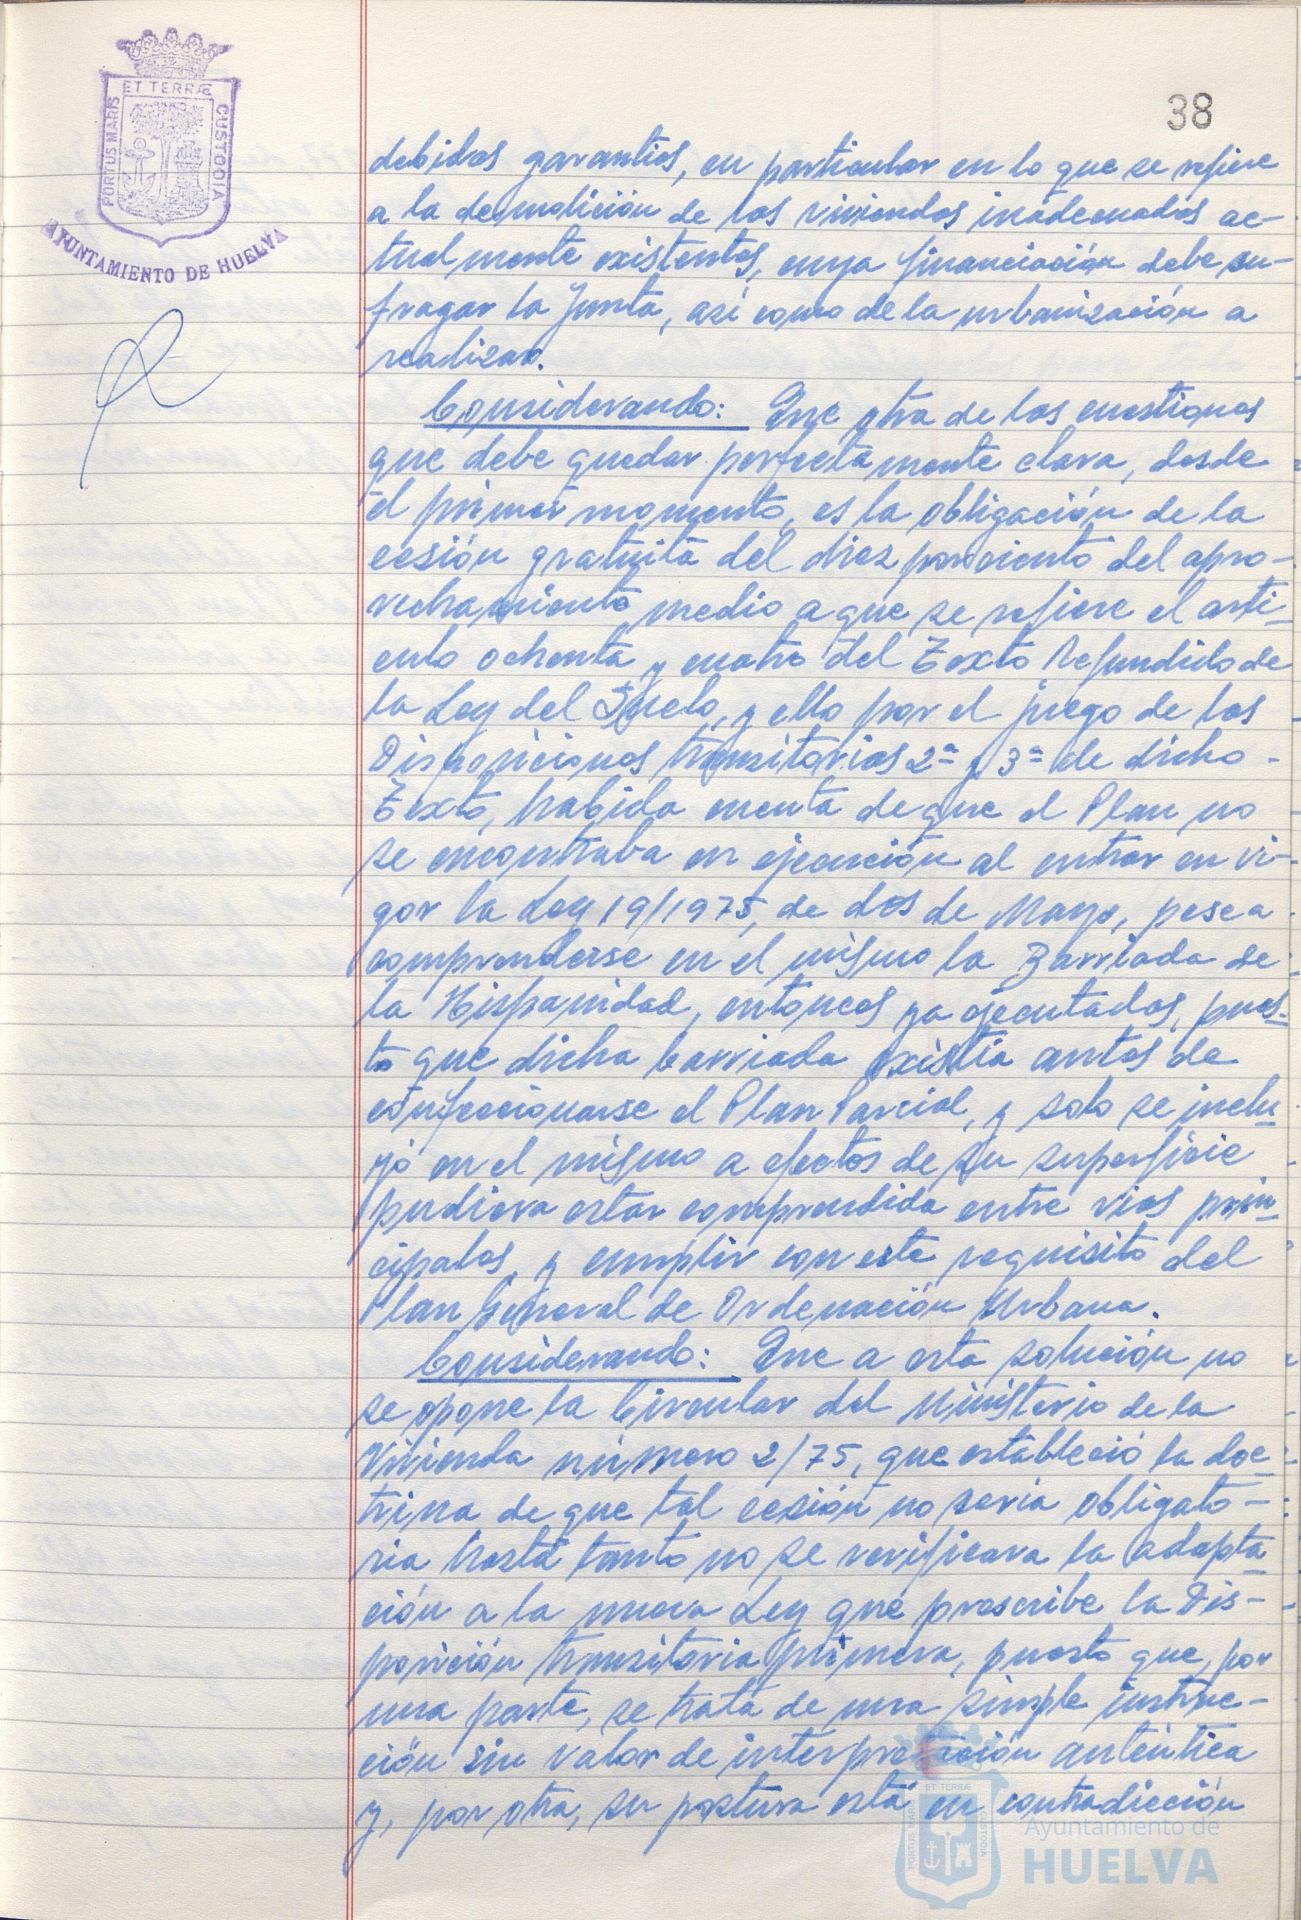 ET TERRÆ
PORTUS MARIS
CUSTODIA
AYUNTAMIENTO DE HUELVA
38
debidas garantias, en particular en lo que se refiere
a la demolición de las viviendas inadecuadas ac-
tualmente existentes, cuya financiación debe su-
fragar la Junta, así como de la urbanización a
realizar.
Considerando: Que otra de las cuestiones
que debe quedar perfectamente clara, desde
el primer momento, es la obligación de la
cesión gratuita del diez por ciento del apro-
vechamiento medio a que se refiere el artí-
culo ochenta y cuatro del Texto Refundido de
la Ley del Suelo, y ello por el juego de las
Disposiciones transitorias 2ª y 3ª de dicho
Texto, habida cuenta de que el Plan no
se encontraba en ejecución al entrar en vi-
gor la Ley 19/1975, de dos de Mayo, pese a
comprenderse en el mismo la Barriada de
la Hispanidad, entonces ya ejecutadas, pues-
to que dicha barriada existía antes de
confeccionarse el Plan Parcial, y solo se inclu-
yó en el mismo a efectos de su superficie
pudiera estar comprendida entre vias prin-
cipales, y cumplir con este requisito del
Plan General de Ordenación Urbana.
Considerando: Que a esta solución no
se opone la Circular del Ministerio de la
Vivienda número 2/75, que estableció la doc-
trina de que tal cesión no seria obligato-
ria hasta tanto no se verificara la adapta
ción a la nueva Ley que prescribe la Dis-
posición transitoria primera, puesto que, por
una parte, se trata de una simple instruc-
ción sin valor de interpretación auténtica
y, por otra, su postura está en contradicción
ET TERRÆ
PORTUS MARIS
CUSTODIA
Ayuntamiento de
HUELVA